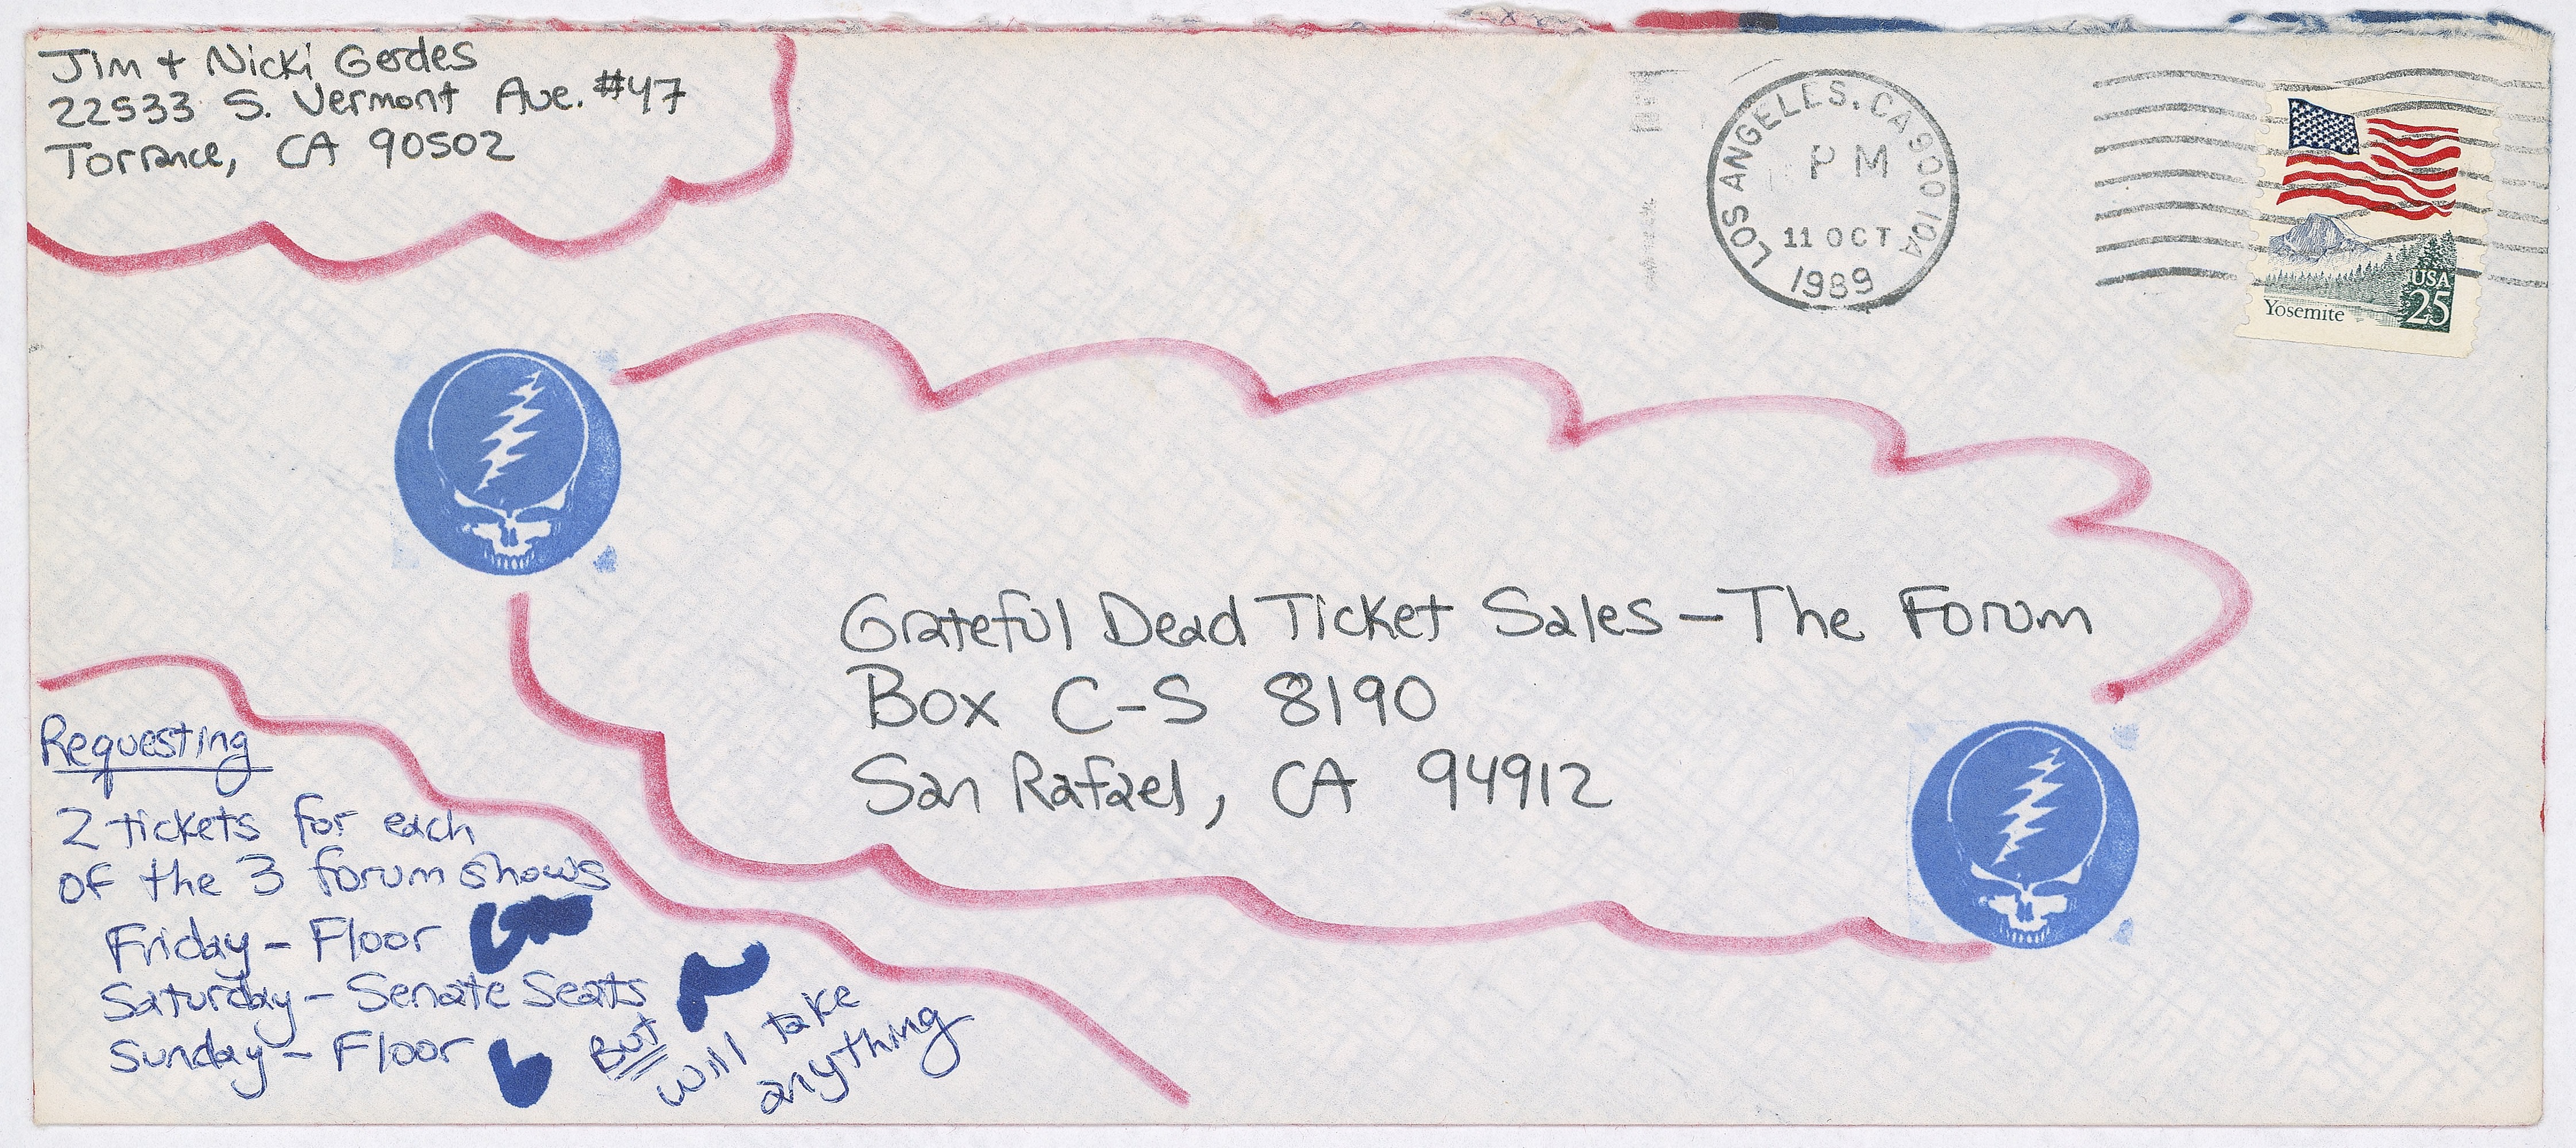 Jim + Nicki Gerdes
22533 S. Vermont Ave. #47
Torrance, CA 90502
LOS ANGELES, CA 900 10A
PM
11 OCT
1989
USA
25
Yosemite
Grateful Dead Ticket Sales - The Forum
Box C-S 8190
San Rafael, CA 94912
Requesting
2 tickets for each
of the 3 forum shows
Friday - Floor
Saturday - Senate Seats
Sunday - Floor
But
will take
anything